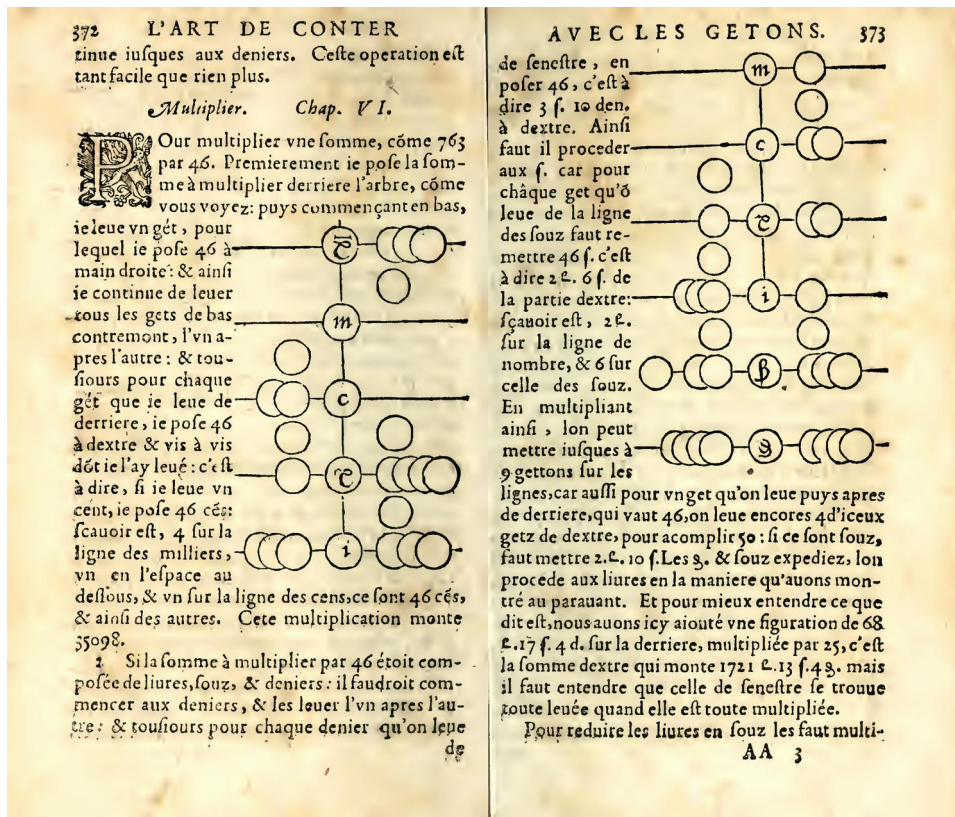 372 L'ART DE CONTER
tinue iuſques aux deniers. Ceſte operation eſt
tant facile que rien plus.
Multiplier. Chap. VI.
POur multiplier vne ſomme, cõme 763
par 46. Premierement ie poſe la ſom-
me à multiplier derriere l'arbre, cõme
vous voyez: puys commençant en bas,
ie leue vn gét, pour
lequel ie poſe 46 à
main droite: & ainſi
ie continue de leuer
tous les gets de bas
contremont, l'vn a-
pres l'autre: & tou-
ſiours pour chaque
gét que ie leue de
derriere, ie poſe 46
à dextre & vis à vis
dõt ie l'ay leué: c'eſt
à dire, ſi ie leue vn
cent, ie poſe 46 cẽs:
ſcauoir eſt, 4 ſur la
ligne des milliers,
vn en l'eſpace au
deſſous, & vn ſur la ligne des cens, ce ſont 46 cẽs,
& ainſi des autres. Cete multiplication monte
35098.
2 Si la ſomme à multiplier par 46 étoit com-
poſée de liures, ſouz, & deniers: il faudroit com-
mencer aux deniers, & les leuer l'vn apres l'au-
tre: & touſiours pour chaque denier qu'on leue
de
m
c
i
AVEC LES GETONS. 373
de feneſtre, en
poſer 46, c'eſt à
dire 3 ſ. 10 den.
à dextre. Ainſi
faut il proceder
aux ſ. car pour
châque get qu'õ
leue de la ligne
des ſouz faut re-
mettre 46 ſ. c'eſt
à dire 2 £. 6 ſ. de
la partie dextre:
ſçauoir eſt, 2 £.
ſur la ligne de
nombre, & 6 ſur
celle des ſouz.
En multipliant
ainſi, lon peut
mettre iuſques à
9 gettons ſur les
lignes, car auſſi pour vn get qu'on leue puys apres
de derriere, qui vaut 46, on leue encores 4 d'iceux
getz de dextre, pour acomplir 50: ſi ce ſont ſouz,
faut mettre 2. £. 10 ſ. Les ꝯ. & ſouz expediez, lon
procede aux liures en la maniere qu'auons mon-
tré au parauant. Et pour mieux entendre ce que
dit eſt, nous auons icy aiouté vne figuration de 68
£. 17 ſ. 4 d. ſur la derriere, multipliée par 25, c'eſt
la ſomme dextre qui monte 1721 £. 13 ſ. 4 ꝯ. mais
il faut entendre que celle de feneſtre ſe trouue
toute leuée quand elle eſt toute multipliée.
Pour reduire les liures en ſouz les faut multi-
AA 3
m
c
i